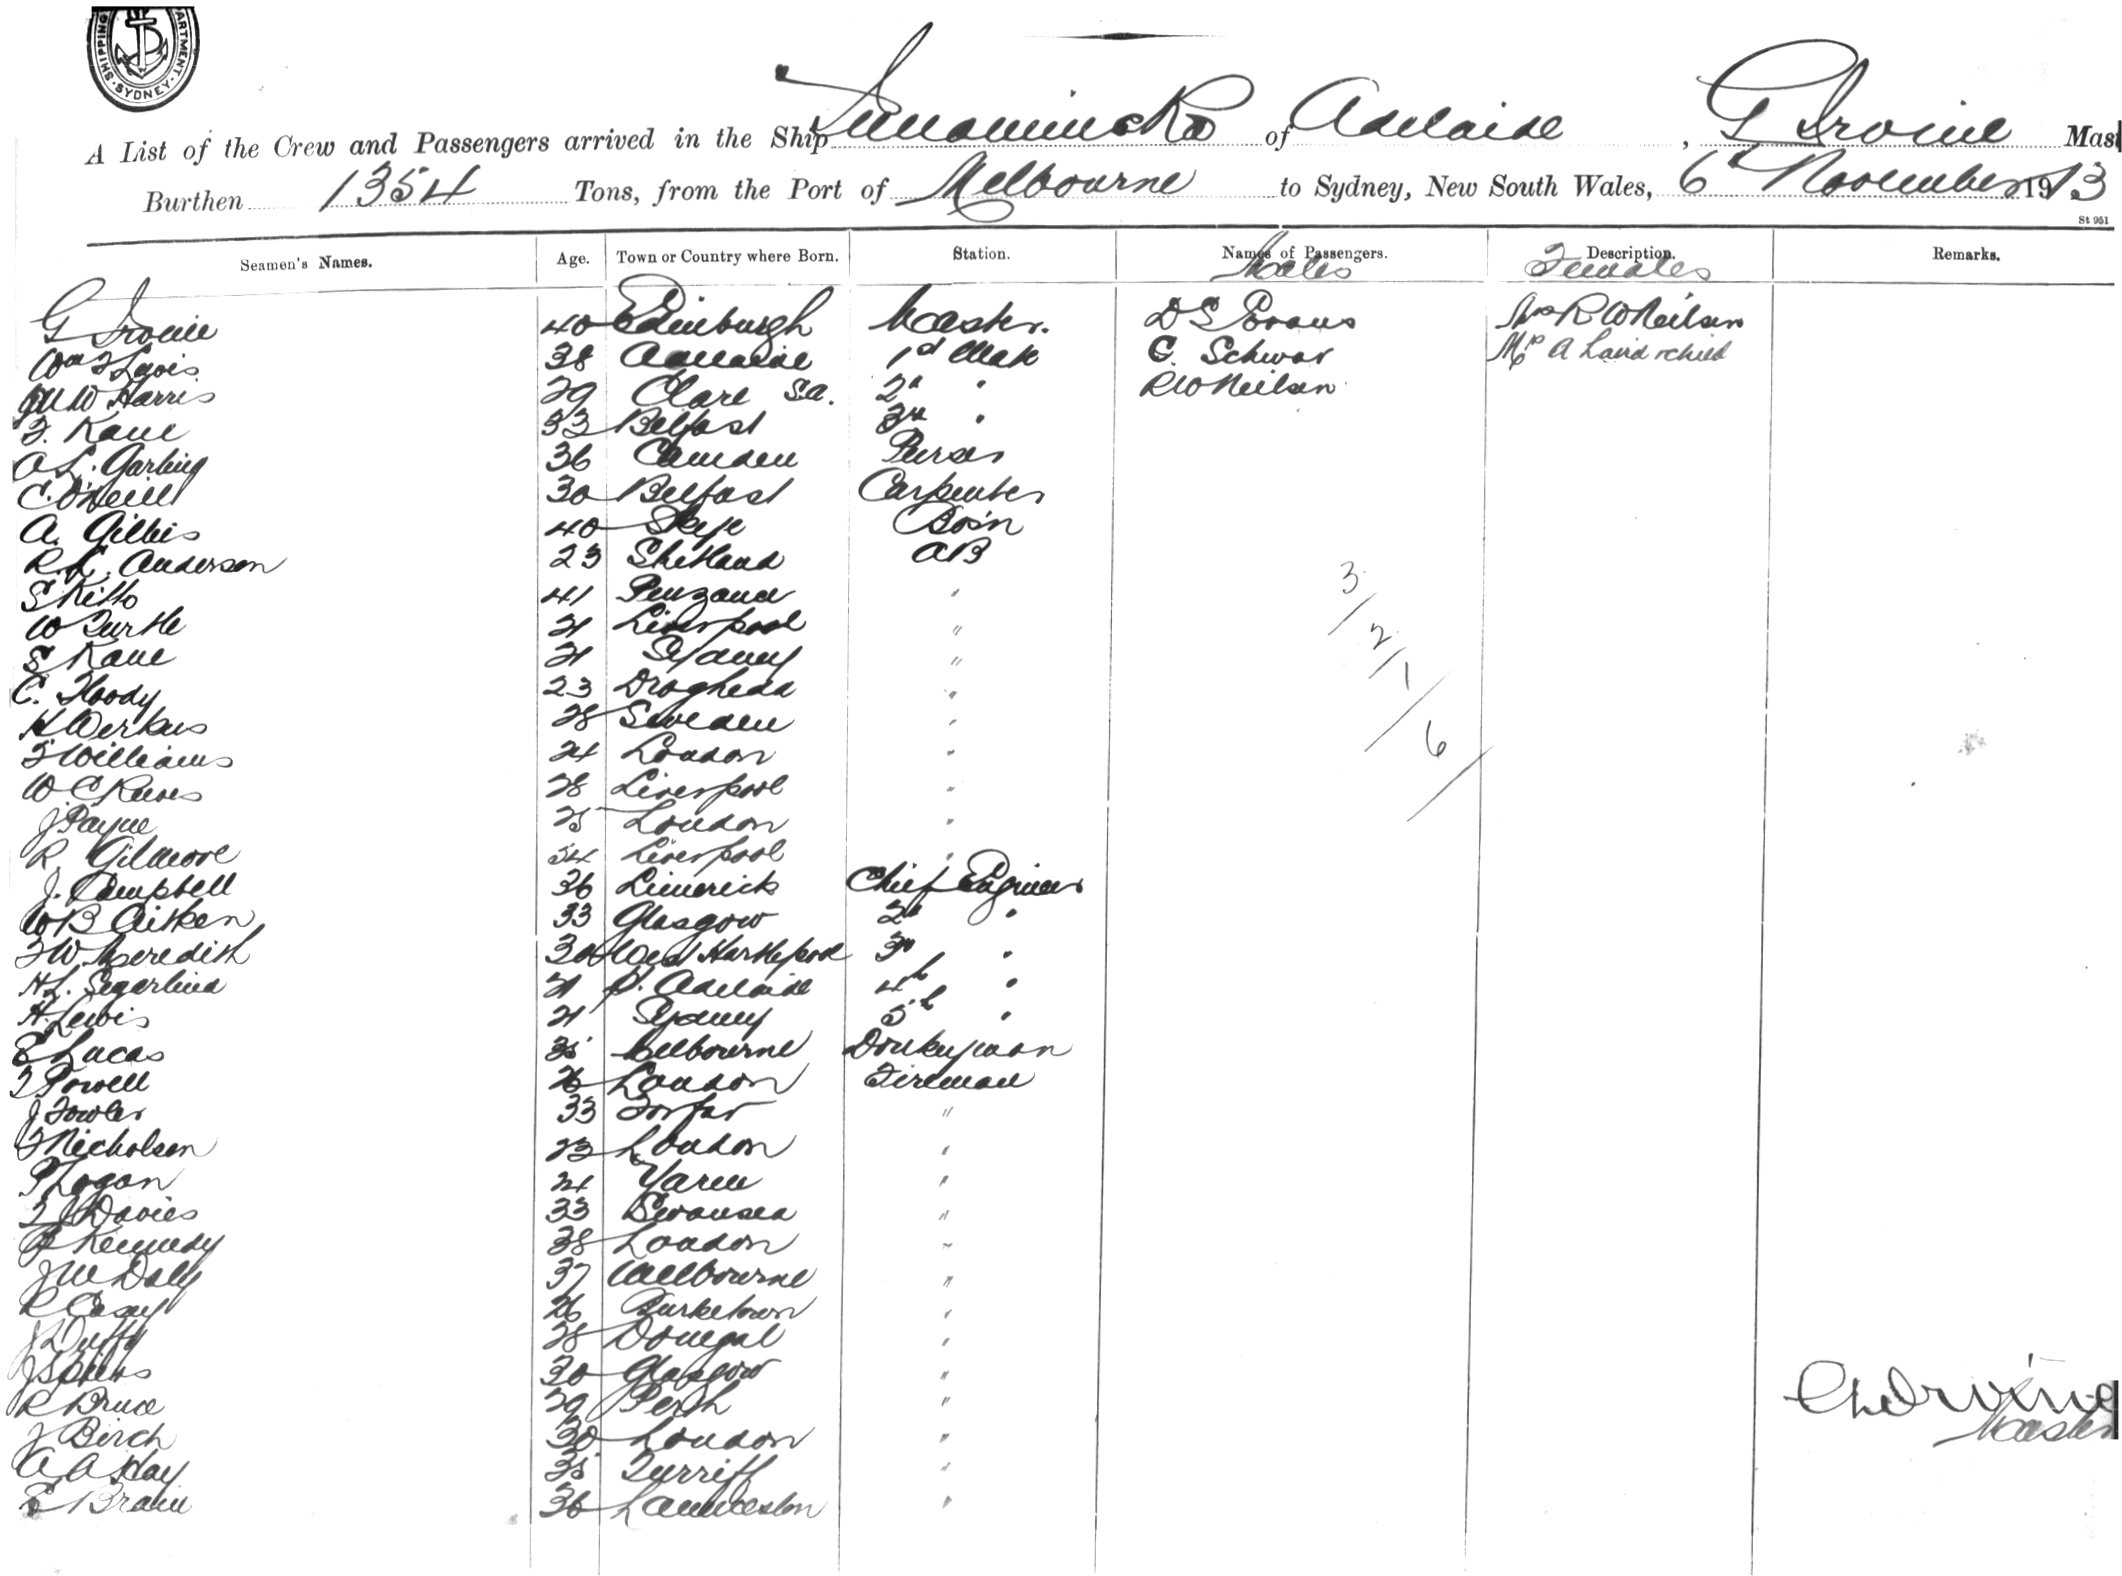 SHIPPING DEPARTMENT. SYDNEY
A List of the Crew and Passengers arrived in the Ship Innamincka of Adelaide, G Irvine Mas
Burthen 1354 Tons, from the Port of Melbourne to Sydney, New South Wales, 6th November 1913
St 951
Seamen's Names. Age. Town or Country where Born. Station. Names of Passengers. Description. Remarks.
Males Females
G Irvine 40 Edinburgh Master. D S Evans Mrs R W Neilsen
Wm J Lewis 38 Adelaide 1st Mate C. Schwar Mrs A Laird & child
W Harris 29 Clare S.A. 2d " R W Neilsen
F. Kane 33 Belfast 3rd "
A L. Garling 36 Camden Purser
C. O'Neill 30 Belfast Carpenter
A. Gillies 40 Skye Bos'n
R. L. Anderson 23 Shetland AB
S Kitto 41 Penzance "
W Turtle 21 Liverpool "
S Kane 21 Sydney "
C. Floody 23 Drogheda "
H Werkus 28 Sweden "
F Williams 24 London "
W C Reeves 28 Liverpool "
J Payne 25 London "
R Gilmore 34 Liverpool "
J. Campbell 36 Limerick Chief Engineer
W B Aitken 33 Glasgow 2d "
F W Meredith 30 West Hartlepool 3rd "
H L. Segerlind 21 P. Adelaide 4th "
H. Lewis 21 Sydney 5th "
E Lucas 35 Melbourne Donkeyman
F Powell 26 London Fireman
J Fowler 33 Forfar "
F Nicholsen 23 London "
P Logan 24 Yarm "
T J Davies 33 Swansea "
P Kennedy 38 London "
J W Daly 37 Melbourne "
R Casey 26 Burketown "
J Duffy 28 Donegal "
J 30 Glasgow "
R Bruce 29 Perth "
J Birch 30 London "
A A Hay 35 Turriff "
E Brain 36 Launceston "
3
2
1
6
Irvine
Master